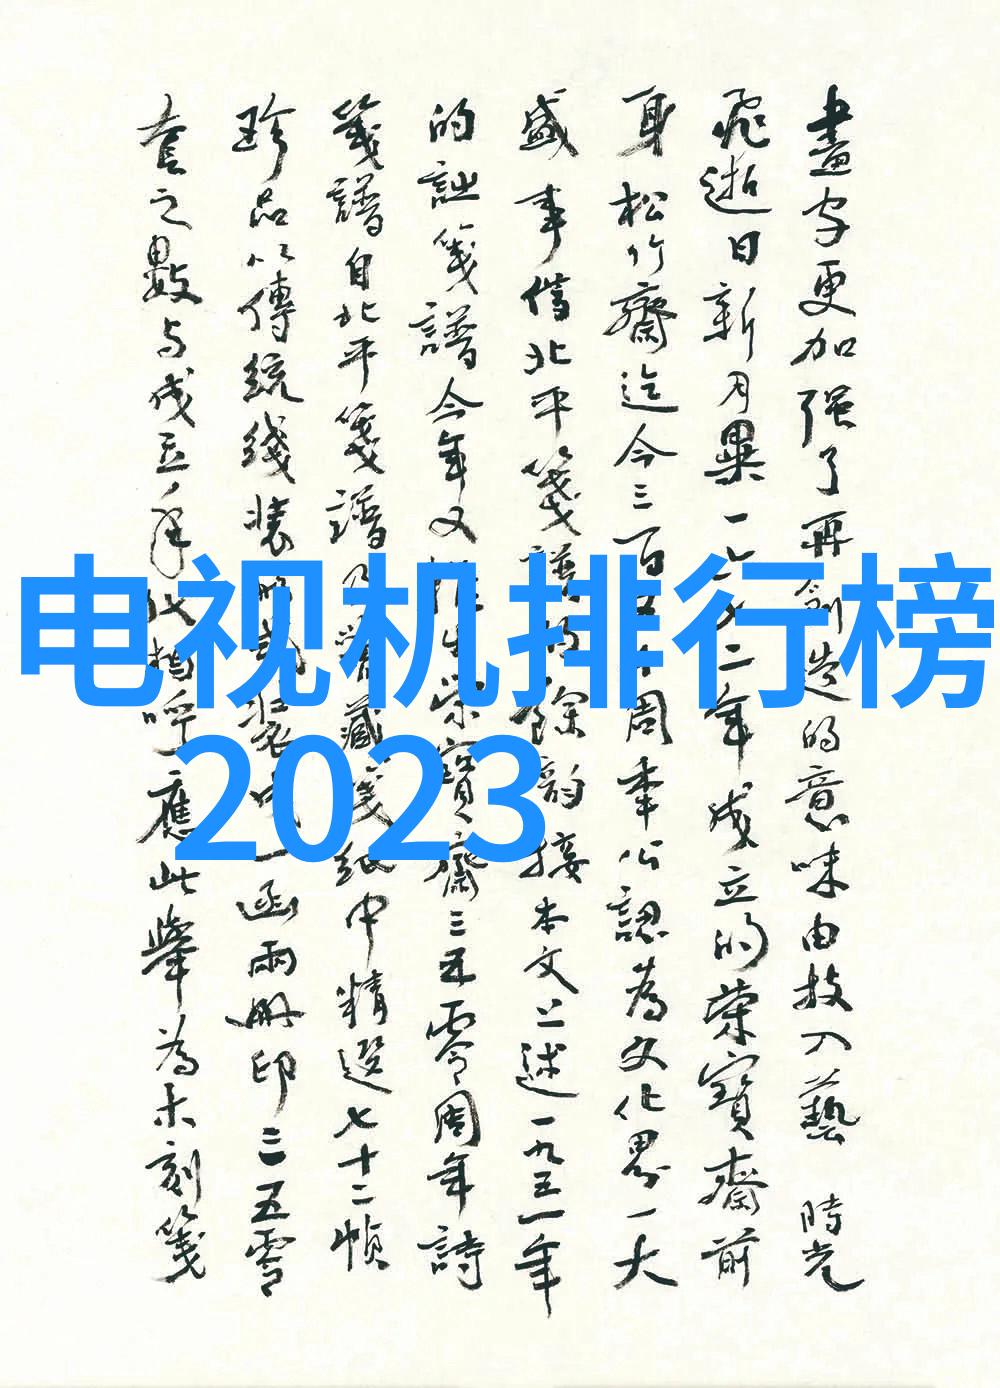 畫字更加强了再創造的意味由技入藝 時光
飛逝日新月異一六七二年成立的榮寶齋前
身松竹齋迄今三百五十周年公認為文化界一大
盛事借北平箋譜的餘韵接本文上述一九五一年
的詩箋譜今年又推出榮寶齋三五零周年詩
箋譜自北平箋譜及舊藏箋紙中精選七十二幀
珍品以傳統綫裝形式裝成一函兩册印三五零
套之數与成立年代相呼應此舉為木刻箋
电视机排行榜
2023